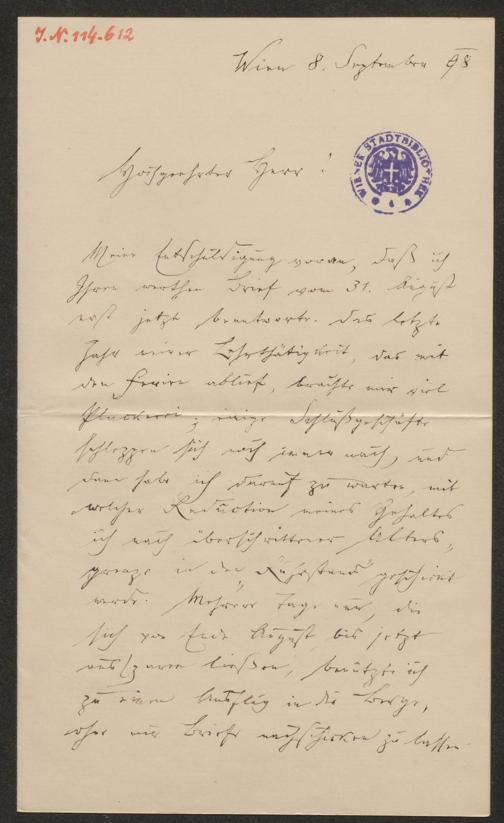 J. N. 114.612
Wien 8. September 98
WIENER STADTBIBLIOTHEK
Hochgeehrter Herr!
Meine Entschuldigung voran, daß ich
Ihren werthen Brief vom 31. August
erst jetzt beantworte. Das letzte
Jahr meiner Lehrthätigkeit, das mit
den Ferien ablief, brachte mir viel
Plackerei; einige Schlußgeschäfte
schleppen sich noch immer nach, und
dann habe ich darauf zu warten, mit
welcher Reduction meines Gehaltes
ich nach überschrittener Alters-
grenze in den „Ruhestand“ geschickt
werde. Mehrere Tage nur, die
sich von Ende August bis jetzt
aussparen ließen, benützte ich
zu einem Ausflug in die Berge,
ohne mir Briefe nachschicken zu lassen.